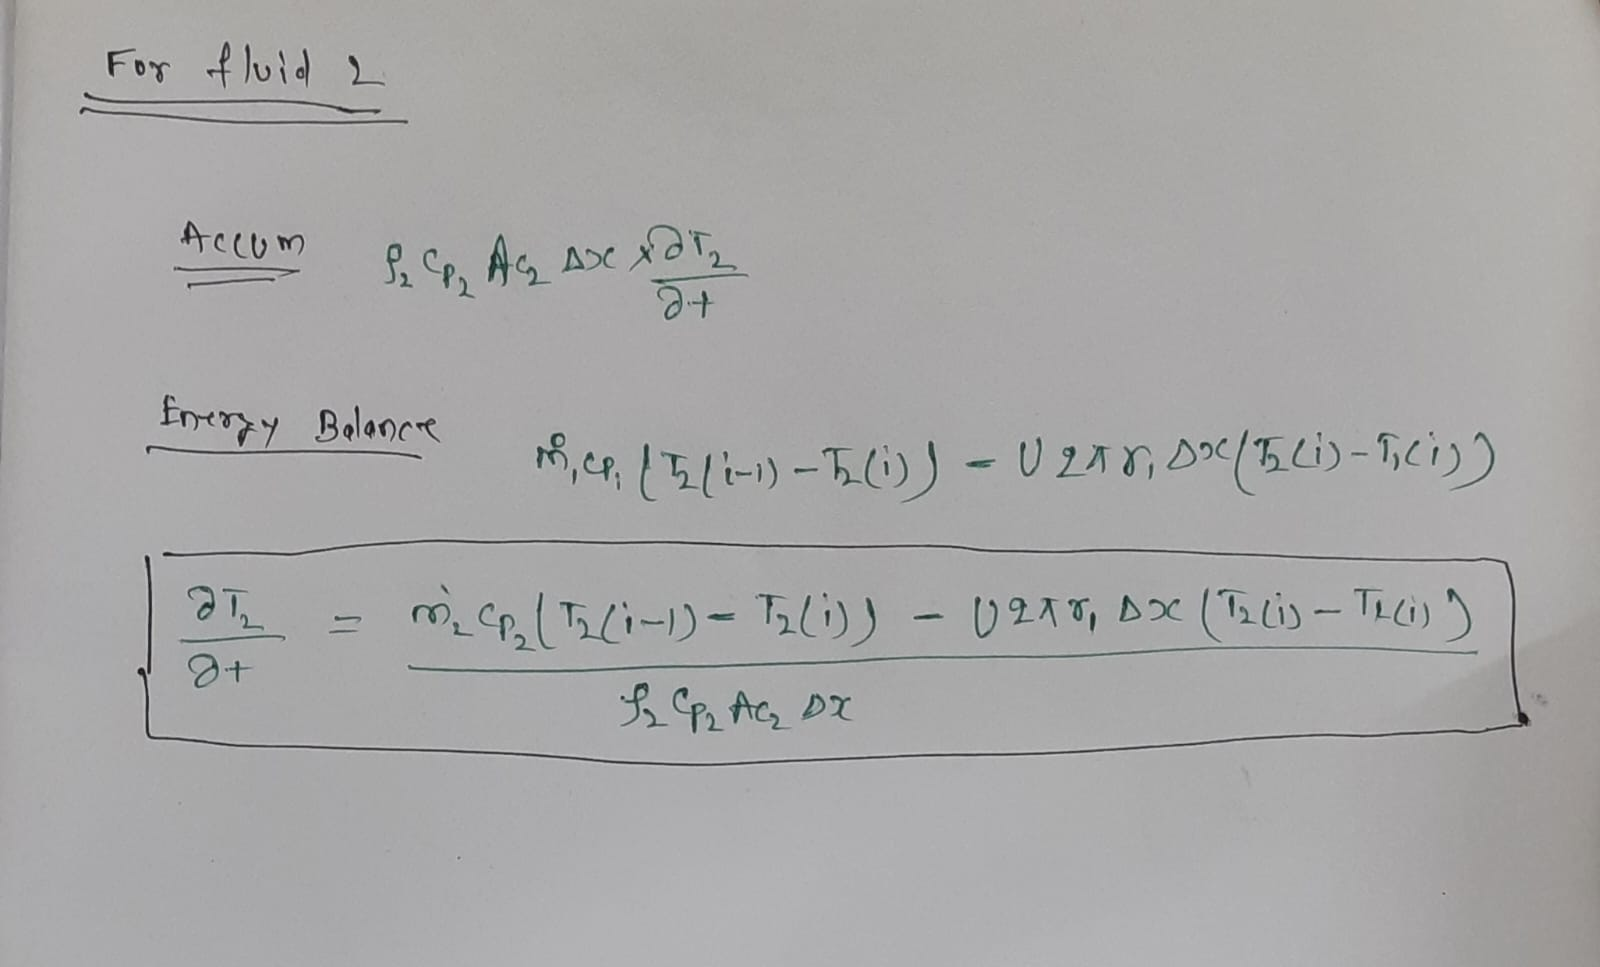 For fluid 2
Accum ρ₂ Cp₂ Ac₂ Δx × ∂T₂/∂t
Energy Balance ṁ₁cp₁ (T₂(i-1) - T₂(i)) - U2πr₁Δx(T₂(i) - T₁(i))
∂T₂/∂t = ṁ₂Cp₂(T₂(i-1) - T₂(i)) - U2πr₁Δx(T₂(i) - T₁(i))
ρ₂ Cp₂ Ac₂ Δx